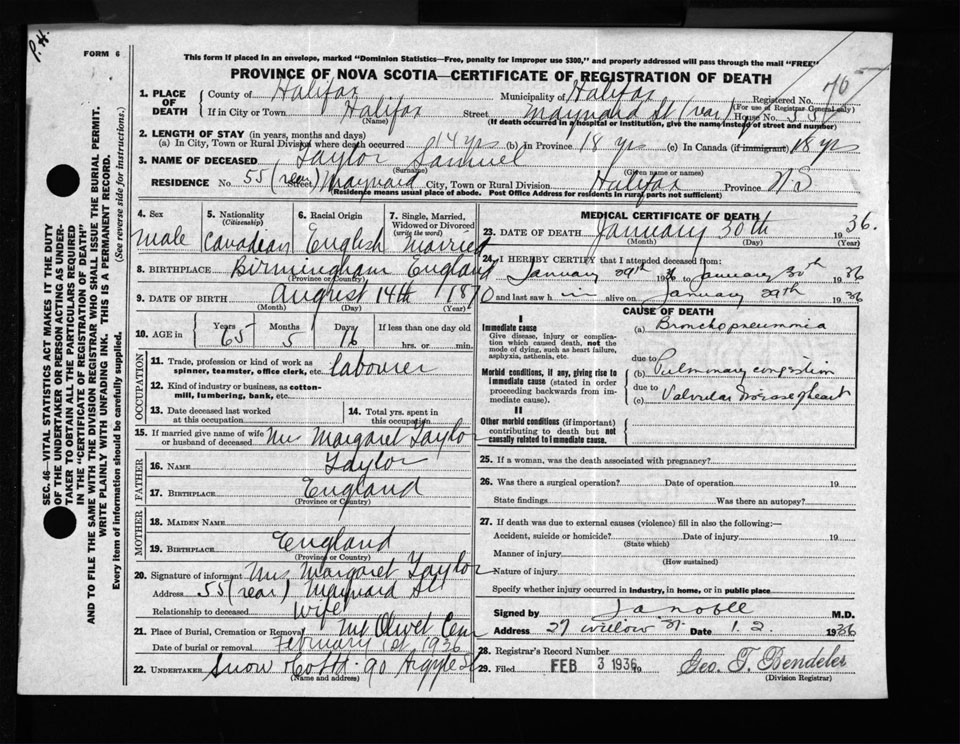 P. H.
FORM 6
This form if placed in an envelope, marked "Dominion Statistics—Free, penalty for improper use $300," and properly addressed will pass through the mail "FREE"
PROVINCE OF NOVA SCOTIA—CERTIFICATE OF REGISTRATION OF DEATH
SEC. 46—VITAL STATISTICS ACT MAKES IT THE DUTY
OF THE UNDERTAKER OR PERSON ACTING AS UNDER-
TAKER TO OBTAIN ALL THE PARTICULARS REQUIRED
IN THE "CERTIFICATE OF REGISTRATION OF DEATH"
AND TO FILE THE SAME WITH THE DIVISION REGISTRAR WHO SHALL ISSUE THE BURIAL PERMIT.
WRITE PLAINLY WITH UNFADING INK. THIS IS A PERMANENT RECORD.
Every item of information should be carefully supplied. (See reverse side for instructions.)
1. PLACE OF DEATH County of Halifax Municipality of Halifax Registered No. 76
(For use of Registrar General only)
If in City or Town Halifax Street Maynard St (rear) House No. 55
(Name) (If death occurred in a hospital or institution, give the name instead of street and number)
2. LENGTH OF STAY (in years, months and days)
(a) In City, Town or Rural Division where death occurred 14 yrs (b) in Province 18 yrs (c) In Canada (if immigrant) 18 yrs
3. NAME OF DECEASED Taylor Samuel
(Surname) (Given name or names)
RESIDENCE No. 55 (rear) Street Maynard City, Town or Rural Division Halifax Province N S
(Residence means usual place of abode. Post Office Address for residents in rural parts not sufficient)
4. Sex 5. Nationality (Citizenship) 6. Racial Origin 7. Single, Married, Widowed or Divorced (write the word)
Male Canadian English Married
8. BIRTHPLACE Birmingham England
(Province or Country)
9. DATE OF BIRTH August 14th 1870
(Month) (Day) (Year)
10. AGE in Years Months Days If less than one day old
65 5 16 hrs. or min.
OCCUPATION
11. Trade, profession or kind of work as spinner, teamster, office clerk, etc. labourer
12. Kind of industry or business, as cotton-mill, lumbering, bank, etc.
13. Date deceased last worked at this occupation
14. Total yrs. spent in this occupation
15. If married give name of wife or husband of deceased Mrs Margaret Taylor
FATHER
16. NAME Taylor
17. BIRTHPLACE England
(Province or Country)
MOTHER
18. MAIDEN NAME
19. BIRTHPLACE England
(Province or Country)
20. Signature of informant Mrs Margaret Taylor
Address 55 (rear) Maynard St
Relationship to deceased wife
21. Place of Burial, Cremation or Removal Mt Olivet Cem
Date of burial or removal February 1st 1936
22. UNDERTAKER Snow Co Ltd - 90 Argyle St
(Name and address)
MEDICAL CERTIFICATE OF DEATH
23. DATE OF DEATH January 30th 1936.
(Month) (Day) (Year)
24. I HEREBY CERTIFY that I attended deceased from:
January 29th 1936 to January 30th 1936
and last saw him alive on January 29th 1936
CAUSE OF DEATH
I
Immediate cause
Give disease, injury or complication which caused death, not the mode of dying, such as heart failure, asphyxia, asthenia, etc.
(a) Bronchopneumonia
due to
Morbid conditions, if any, giving rise to immediate cause (stated in order proceeding backwards from immediate cause).
(b) Pulmonary congestion
due to
(c) Valvular disease of heart
II
Other morbid conditions (if important) contributing to death but not causally related to immediate cause.
25. If a woman, was the death associated with pregnancy?
26. Was there a surgical operation? Date of operation 19
State findings Was there an autopsy?
27. If death was due to external causes (violence) fill in also the following:—
Accident, suicide or homicide? Date of injury 19
(State which)
Manner of injury
(How sustained)
Nature of injury
Specify whether injury occurred in industry, in home, or in public place
Signed by J A Noble M.D.
Address 29 Willow St. Date 1. 2. 1936
28. Registrar's Record Number
29. Filed FEB 3 1936 19 Geo. T. Bendeler
(Division Registrar)